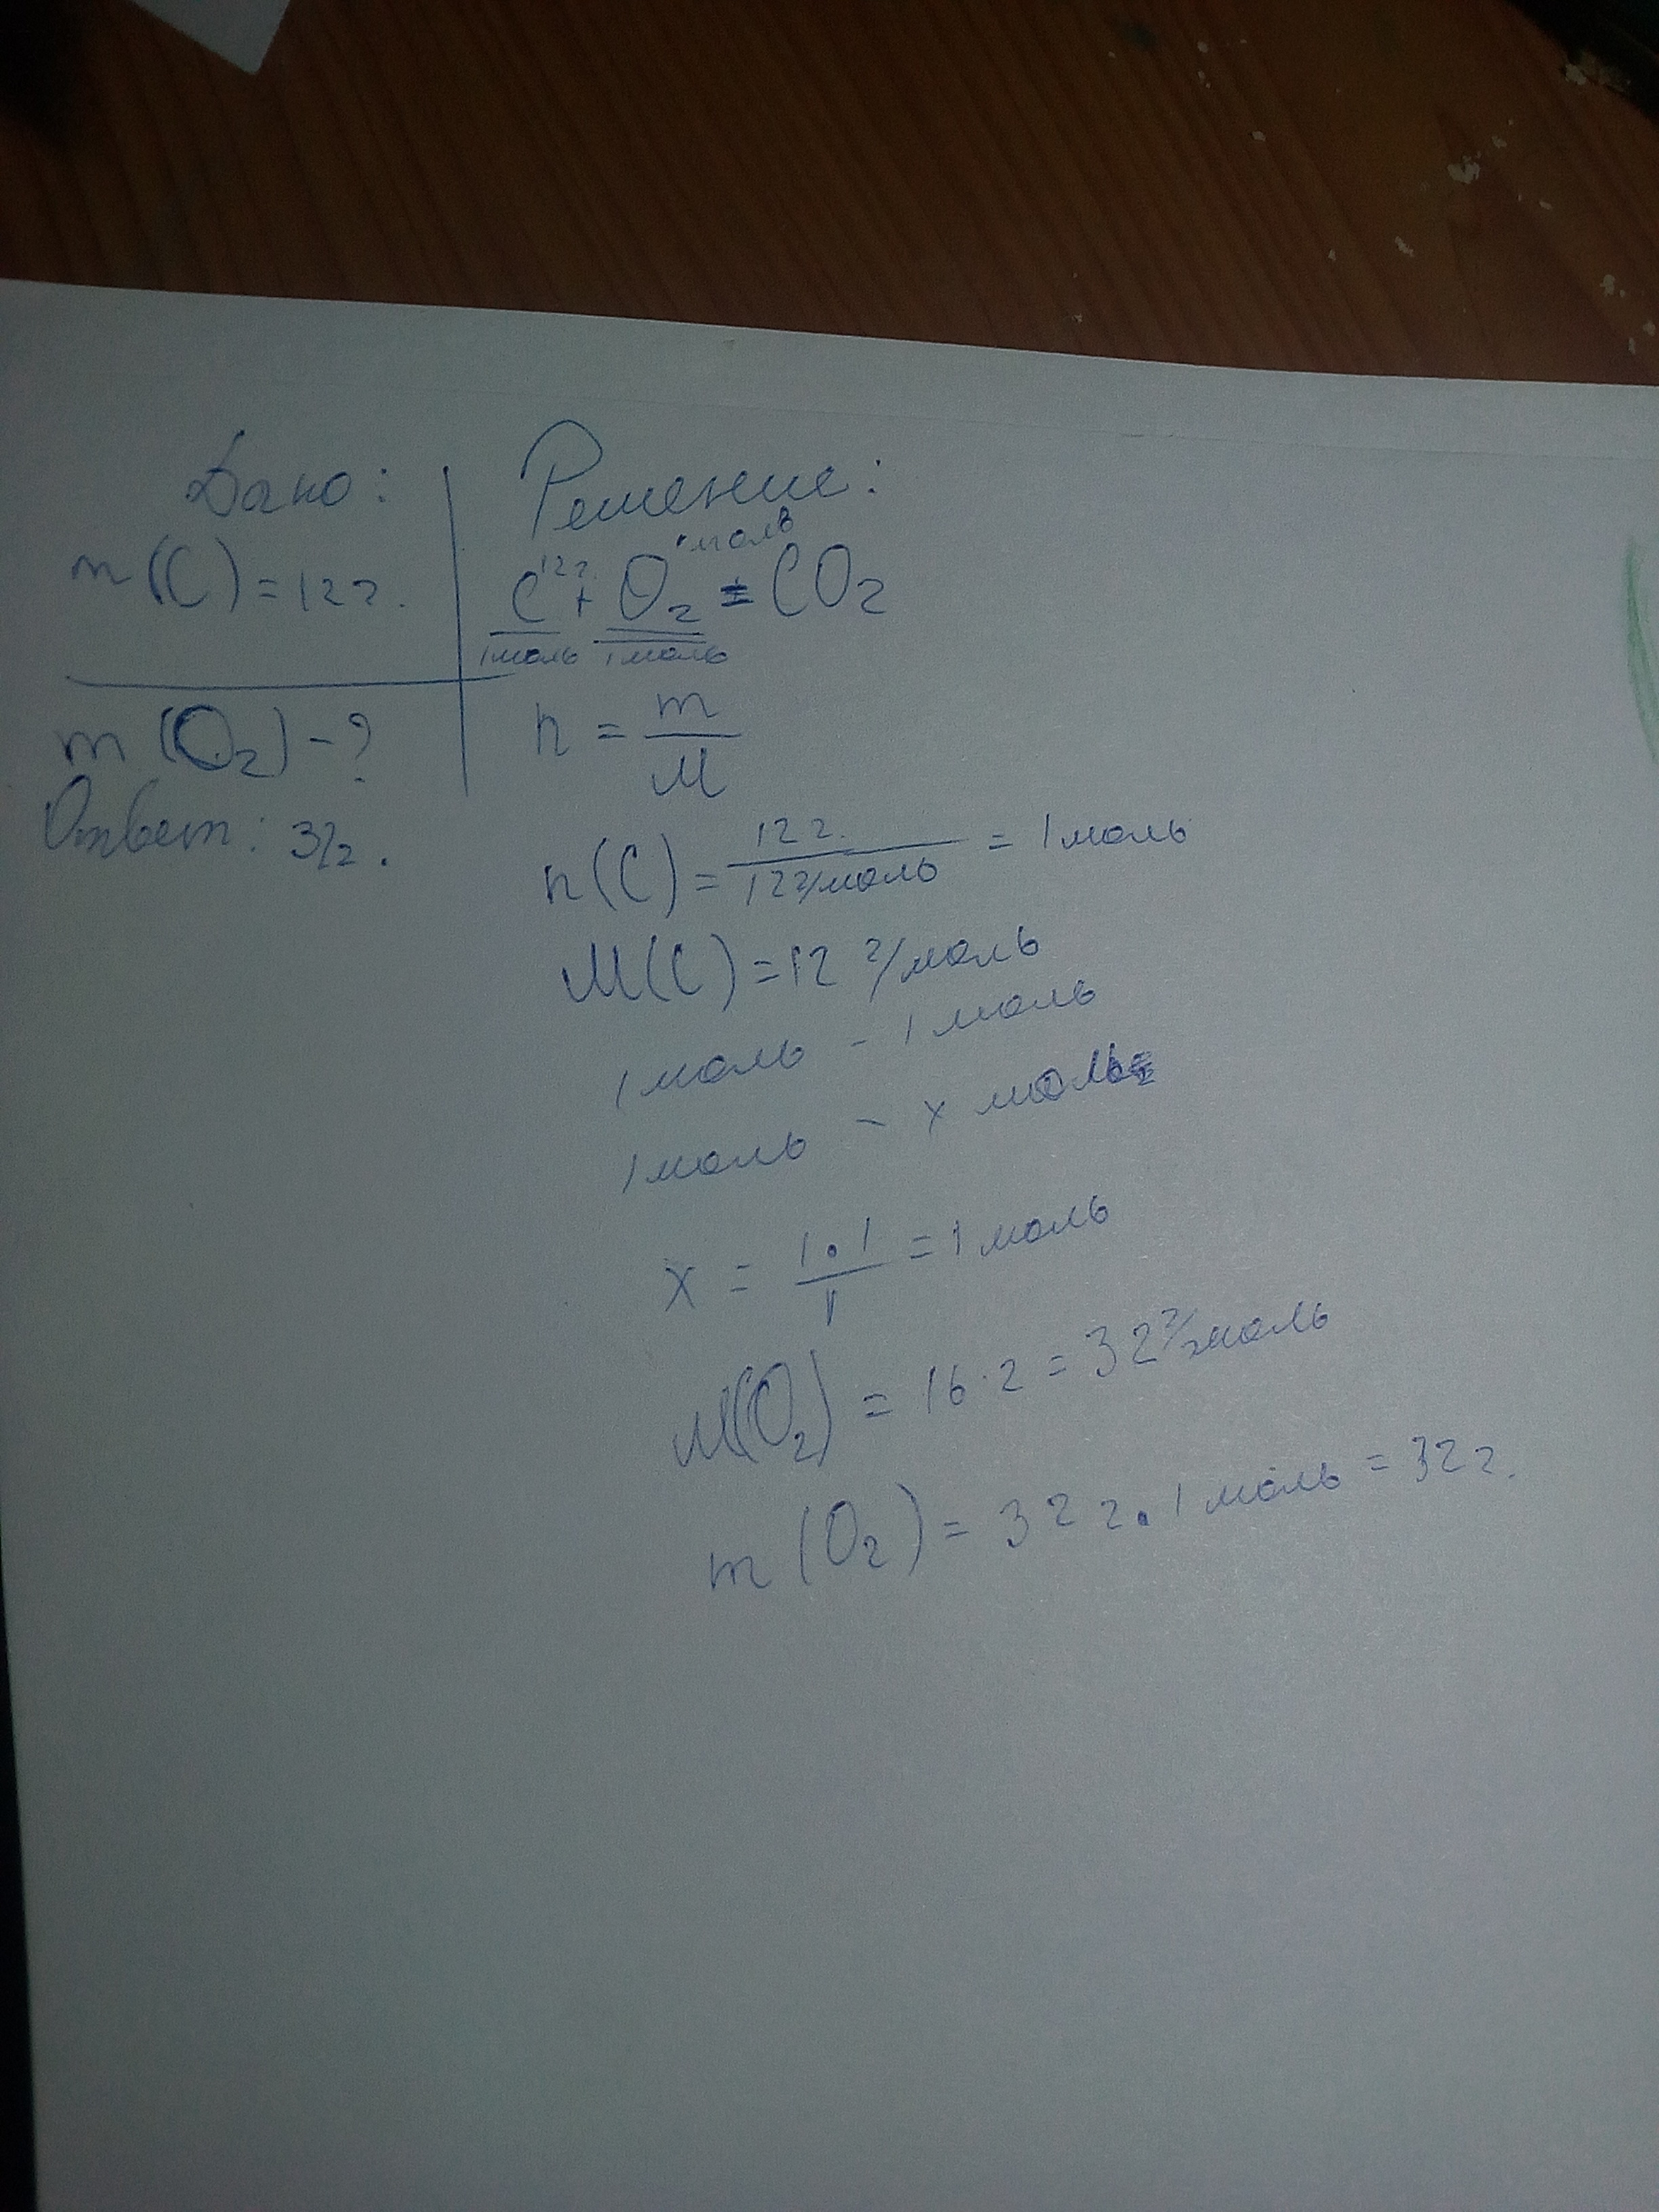 Дано:
m(C)=12г.
m(O₂)-?
Ответ: 32.
Решение:
моль
12г.
C+O₂=CO₂
1моль 1моль
n = m/M
n(C)= 12г./12г/моль = 1моль
M(C)=12 г/моль
1моль - 1моль
1моль - x моль
x = 1·1/1 = 1моль
M(O₂) = 16·2 = 32г/моль
m(O₂) = 32г·1моль = 32г.